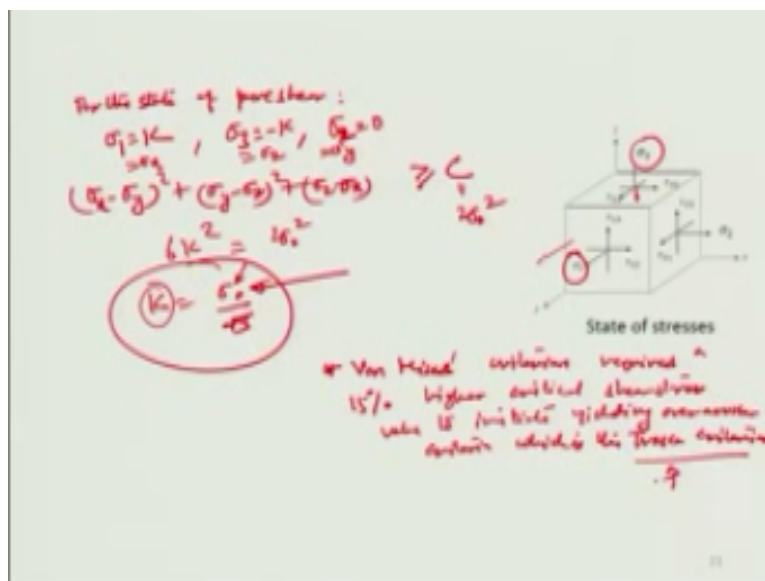 For this state of pure shear :
σ₁ = K , σ₃ = -K , σ₂ = 0
= σx = σz = σy
(σx - σy)² + (σy - σz)² + (σz - σx) ≥ C
2σ₀²
6K² = 2σ₀²
K = σ₀ / √3
State of stresses
* Von Mises' criterion required a
15% higher critical shear stress
value to initiate yielding over another
criterion which is the Tresca criterion